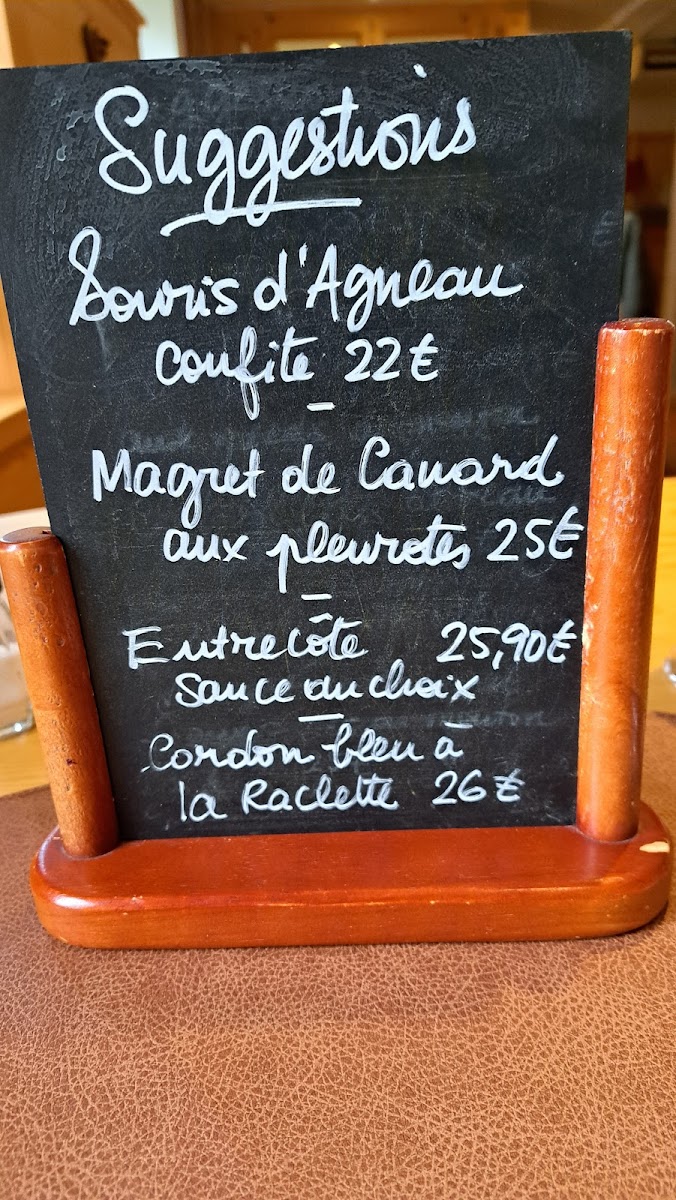 Suggestions
Souris d'Agneau
confite 22€
Magret de Canard
aux pleurotes 25€
Entrecôte 25,90€
Sauce au choix
Cordon bleu à
la Raclette 26€